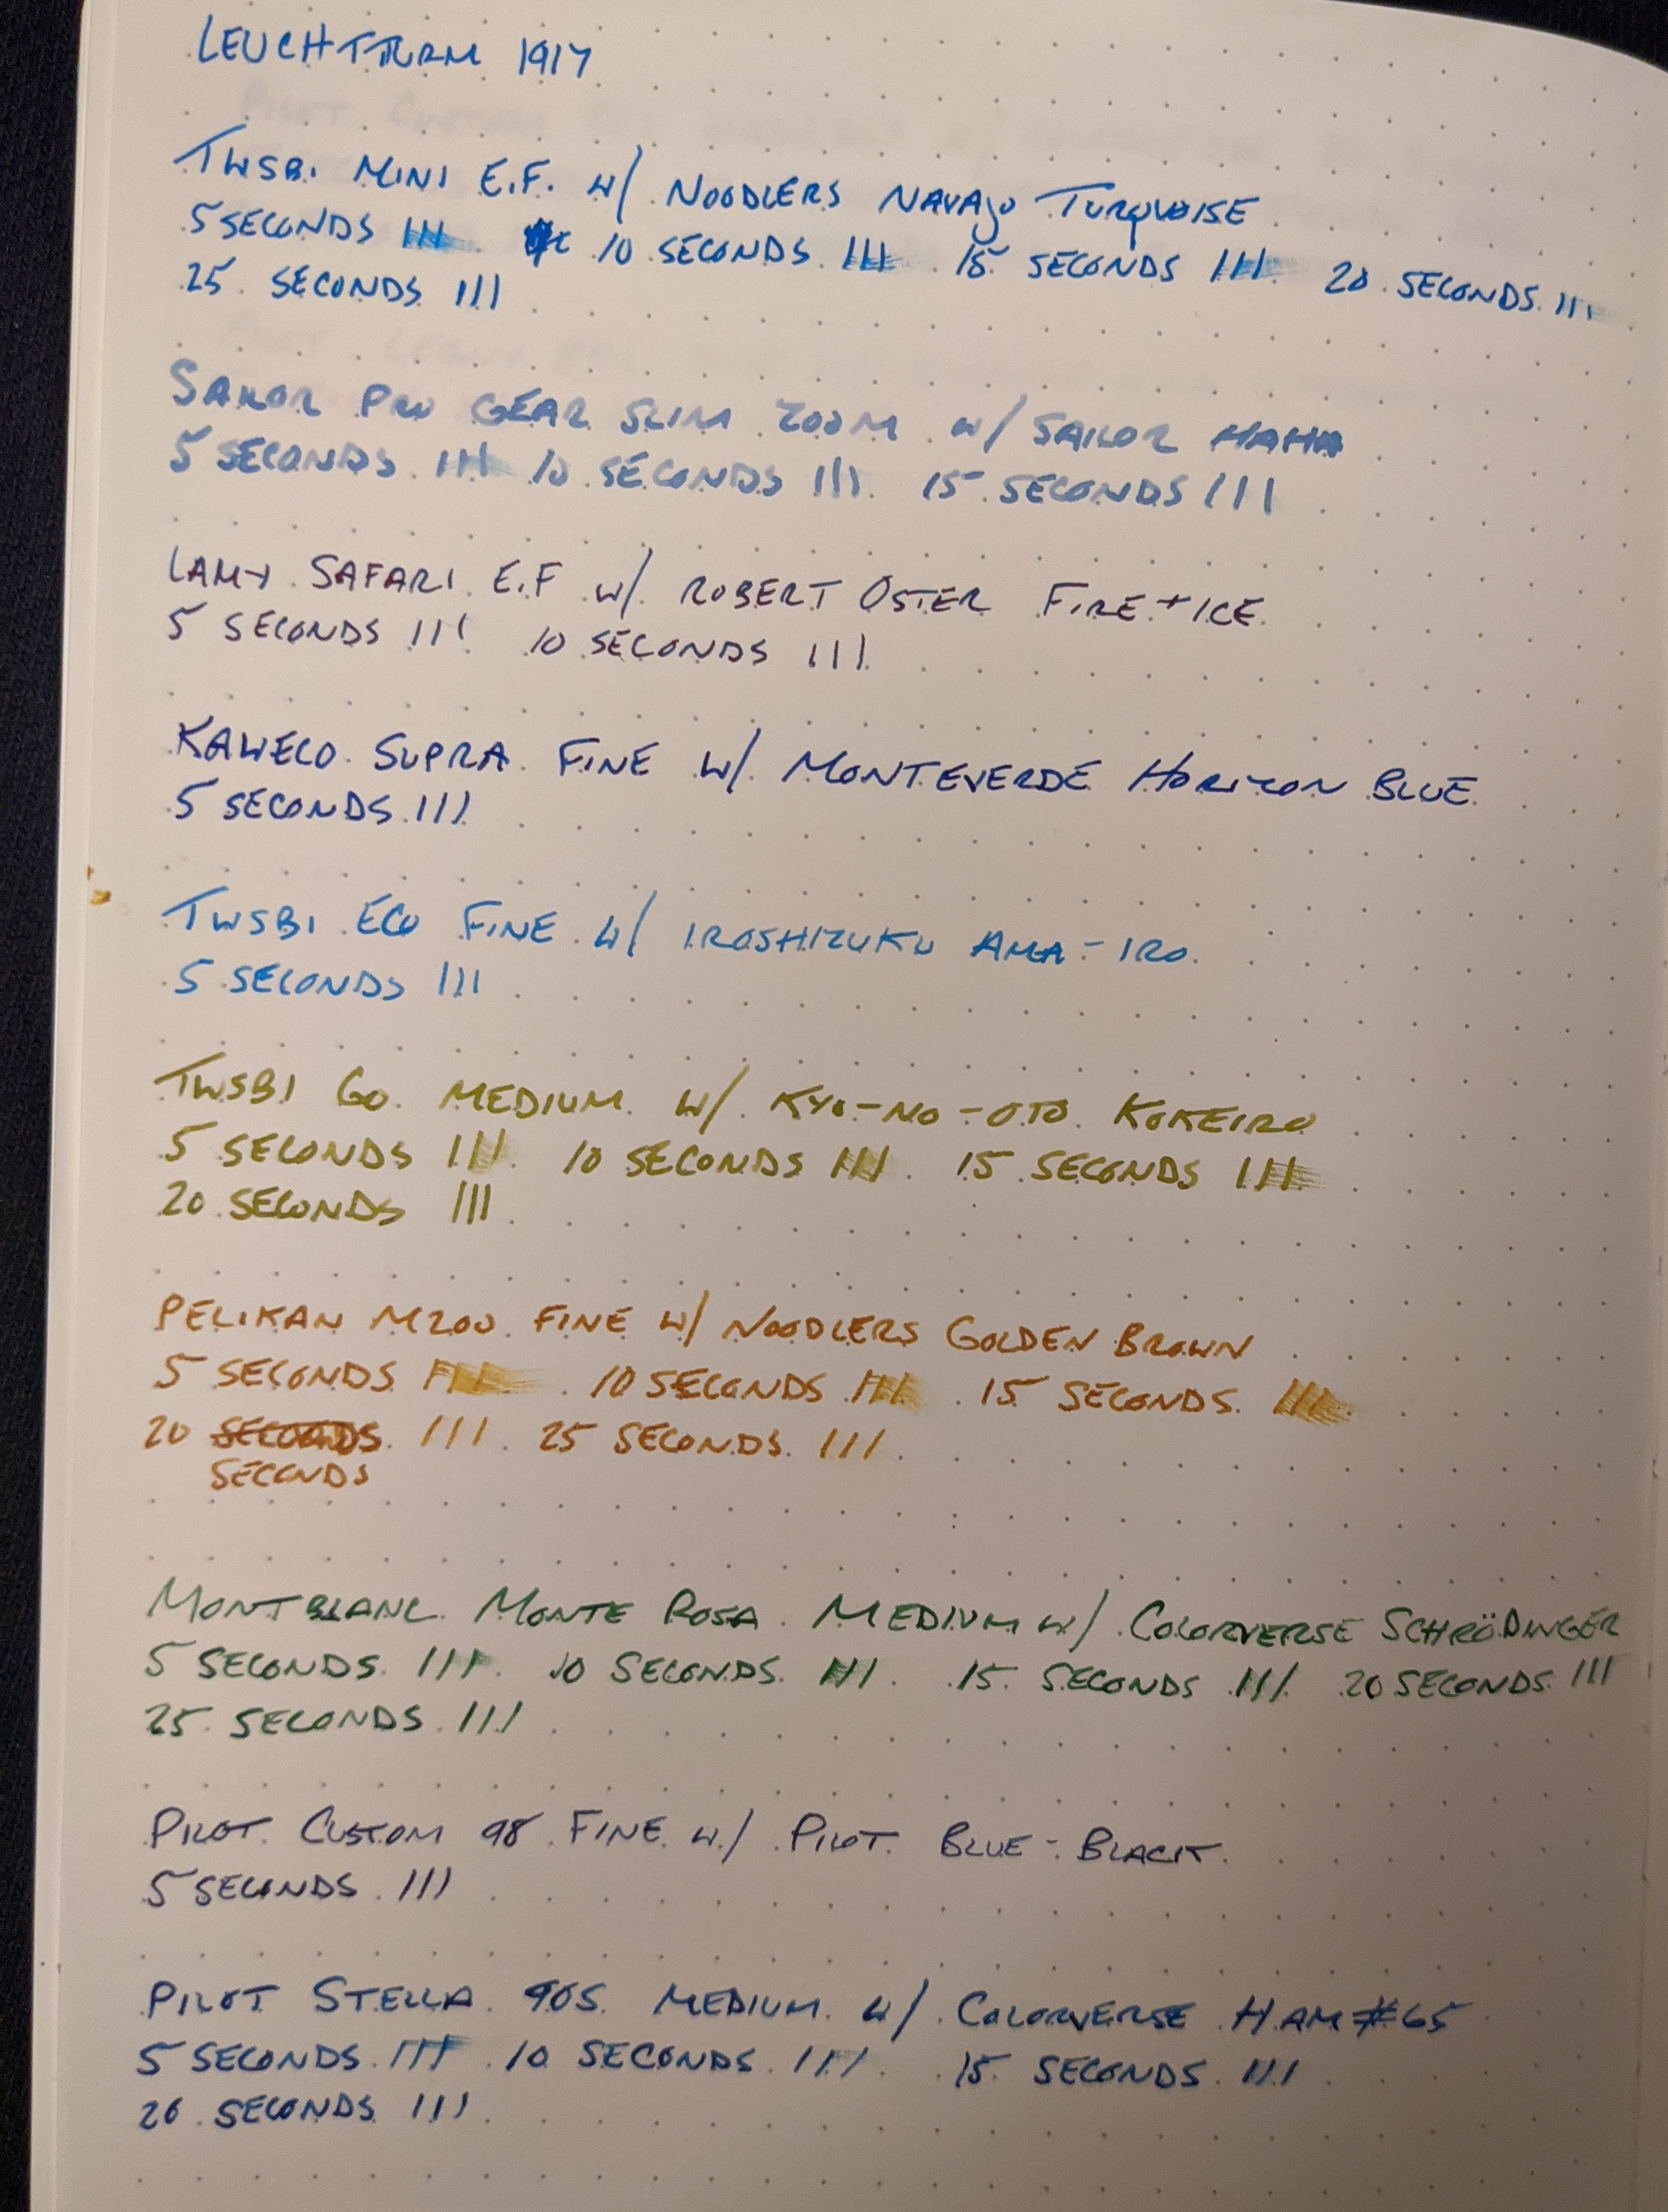 LEUCHTTURM 1917
TWSBI MINI E.F. W/ NOODLERS NAVAJO TURQUOISE
5 SECONDS III 10 SECONDS III 15 SECONDS III 20 SECONDS III
25 SECONDS III
SAILOR PRO GEAR SLIM ZOOM W/ SAILOR
5 SECONDS III 10 SECONDS III 15 SECONDS III
LAMY SAFARI E.F W/ ROBERT OSTER FIRE + ICE
5 SECONDS III 10 SECONDS III
KAWECO SUPRA FINE W/ MONTEVERDE HORIZON BLUE
5 SECONDS III
TWSBI ECO FINE W/ IROSHIZUKU AMA-IRO
5 SECONDS III
TWSBI GO MEDIUM W/ KYO-NO-OTO KOKEIRO
5 SECONDS III 10 SECONDS III 15 SECONDS III
20 SECONDS III
PELIKAN M200 FINE W/ NOODLERS GOLDEN BROWN
5 SECONDS III 10 SECONDS III 15 SECONDS III
20 SECONDS III 25 SECONDS III
SECONDS
MONTBLANC MONTE ROSA MEDIUM W/ COLORVERSE SCHRÖDINGER
5 SECONDS III 10 SECONDS III 15 SECONDS III 20 SECONDS III
25 SECONDS III
PILOT CUSTOM 98 FINE W/ PILOT BLUE-BLACK
5 SECONDS III
PILOT STELLA 90S MEDIUM W/ COLORVERSE HAM #65
5 SECONDS III 10 SECONDS III 15 SECONDS III
20 SECONDS III